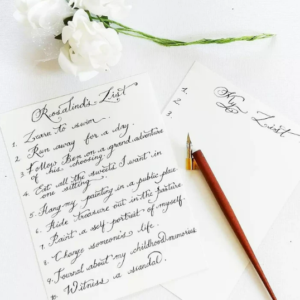 Rosalind's List
1. Learn to swim.
2. Run away for a day.
3. Follow Ben on a grand adventure
of his choosing.
4. Eat all the sweets I want in
one sitting.
5. Hang my painting in a public place
6. Hide treasure out in the pasture
7. Paint a self portrait of myself.
8. Change someone's life.
9. Journal about my childhood memories
10. Witness a scandal.
My List
1.
2.